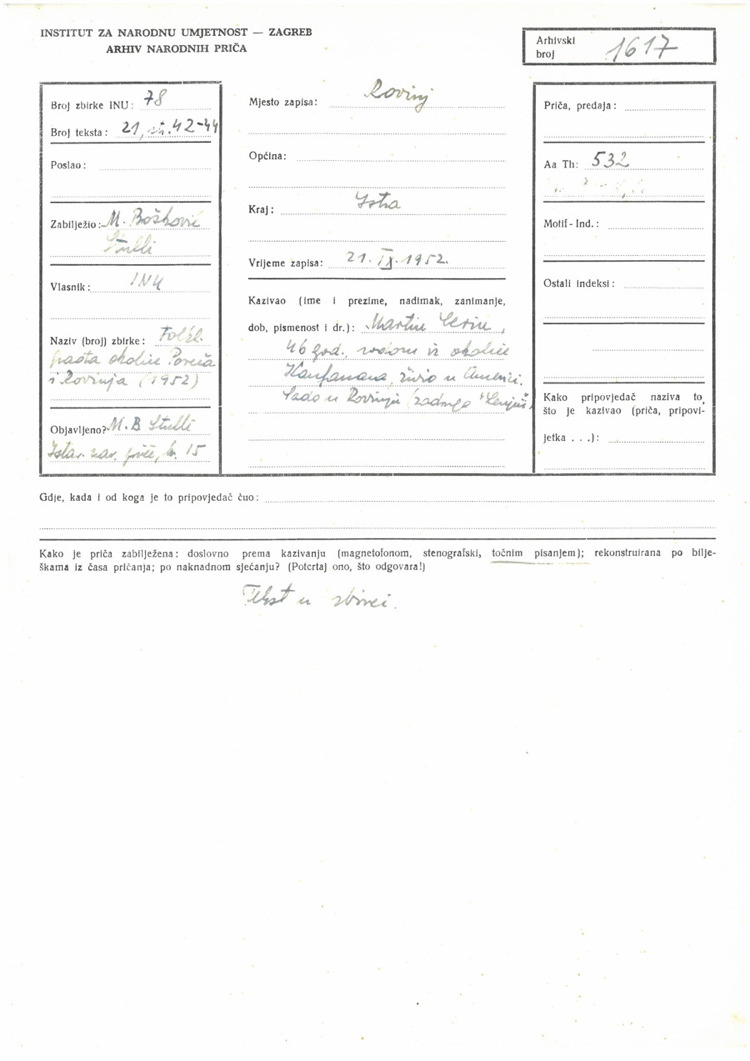 INSTITUT ZA NARODNU UMJETNOST — ZAGREB
ARHIV NARODNIH PRIČA
Arhivski broj 1617
Broj zbirke INU: 78
Broj teksta: 21, str. 42-44
Poslao:
Zabilježio: M. Bošković
Stulli
Vlasnik: INU
Naziv (broj) zbirke: Folkl.
građa okolice Poreča
i Rovinja (1952)
Objavljeno? M. B Stulli
Istar. nar. priče, br. 15
Mjesto zapisa: Rovinj
Općina:
Kraj: Istra
Vrijeme zapisa: 21. IX. 1952.
Kazivao (ime i prezime, nadimak, zanimanje,
dob, pismenost i dr.): Martin
46 god., rodom iz okolice
Kanfanara, živio u Americi.
Sada u Rovinju (zadruga
Priča, predaja:
Aa Th: 532
Motif-Ind.:
Ostali indeksi:
Kako pripovjedač naziva to,
što je kazivao (priča, pripovi-
jetka . . .):
Gdje, kada i od koga je to pripovjedač čuo:
Kako je priča zabilježena: doslovno prema kazivanju (magnetofonom, stenografski, točnim pisanjem); rekonstruirana po bilje-
škama iz časa pričanja; po naknadnom sjećanju? (Potcrtaj ono, što odgovara!)
Tekst u zbirci.